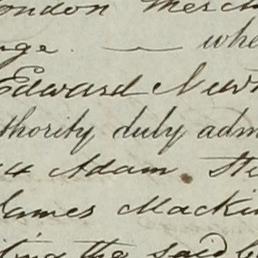 London Merch
nge. — whe
Edward New
thority duly adm
Adam Ste
James Mackin
the said